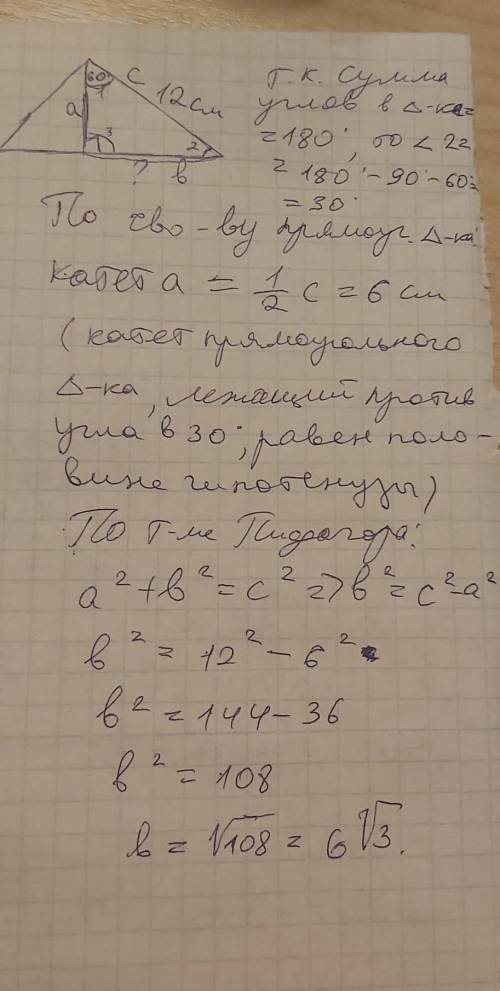 60° c
1
a 12 см
3
2
? b
т.к. сумма
углов в Δ-ке=
=180°, то <2=
= 180°-90°-60°=
= 30°
По сво-ву прямоуг. Δ-ка:
катет a = 1/2 c = 6 см
(катет прямоугольного
Δ-ка, лежащий против
угла в 30°, равен поло-
вине гипотенузы)
По т-ме Пифагора:
a² + b² = c² => b² = c² - a²
b² = 12² - 6²
b² = 144 - 36
b² = 108
b = √108 = 6√3.